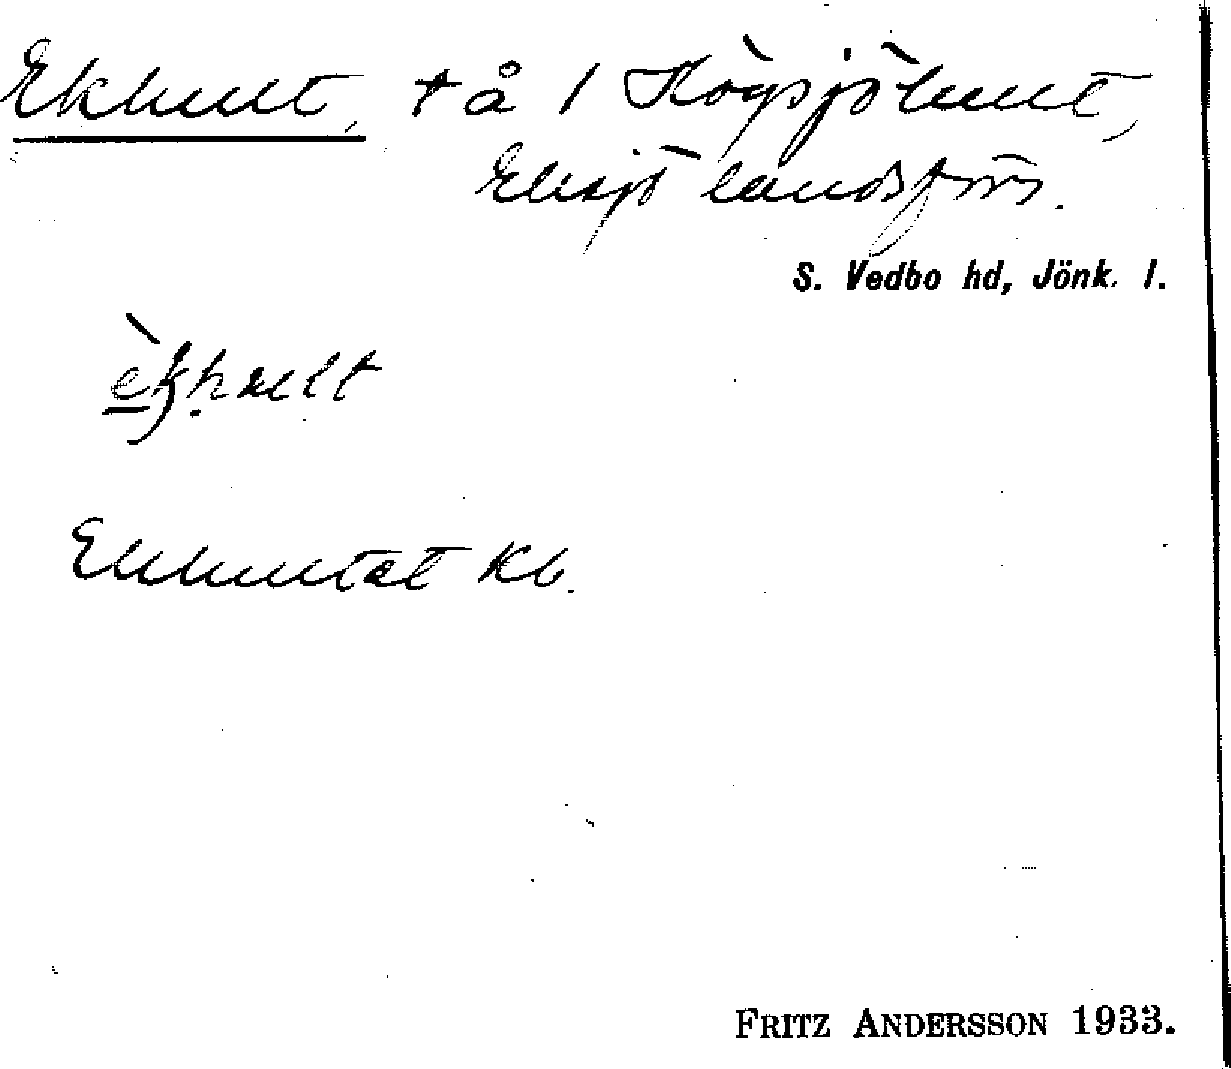 Ekhult, t å 1 Högsjöhult,
Eksjö landsförs.
S. Vedbo hd, Jönk. l.
èkhult
Ekhultet Kb.
FRITZ ANDERSSON 1933.